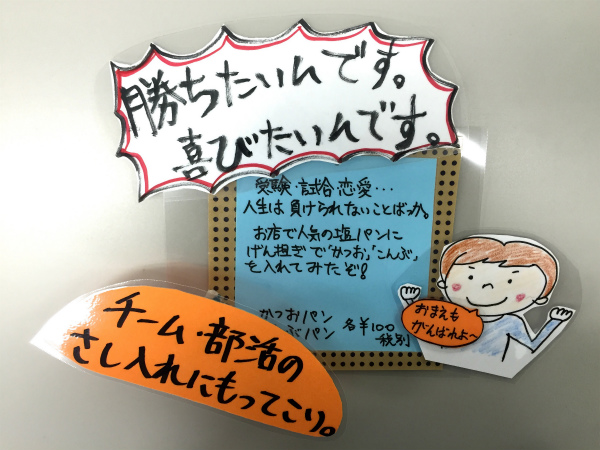 勝ちたいんです。
喜びたいんです。
受験・試合・恋愛・・・
人生は負けられないことばっか。
お店で人気の塩パンに
げん担ぎで「かつお」「こんぶ」
を入れてみたぞ!
かつおパン
ぶパン 各¥100
税別
チーム・部活の
さし入れにもってこい。
おまえも
がんばれよ〜